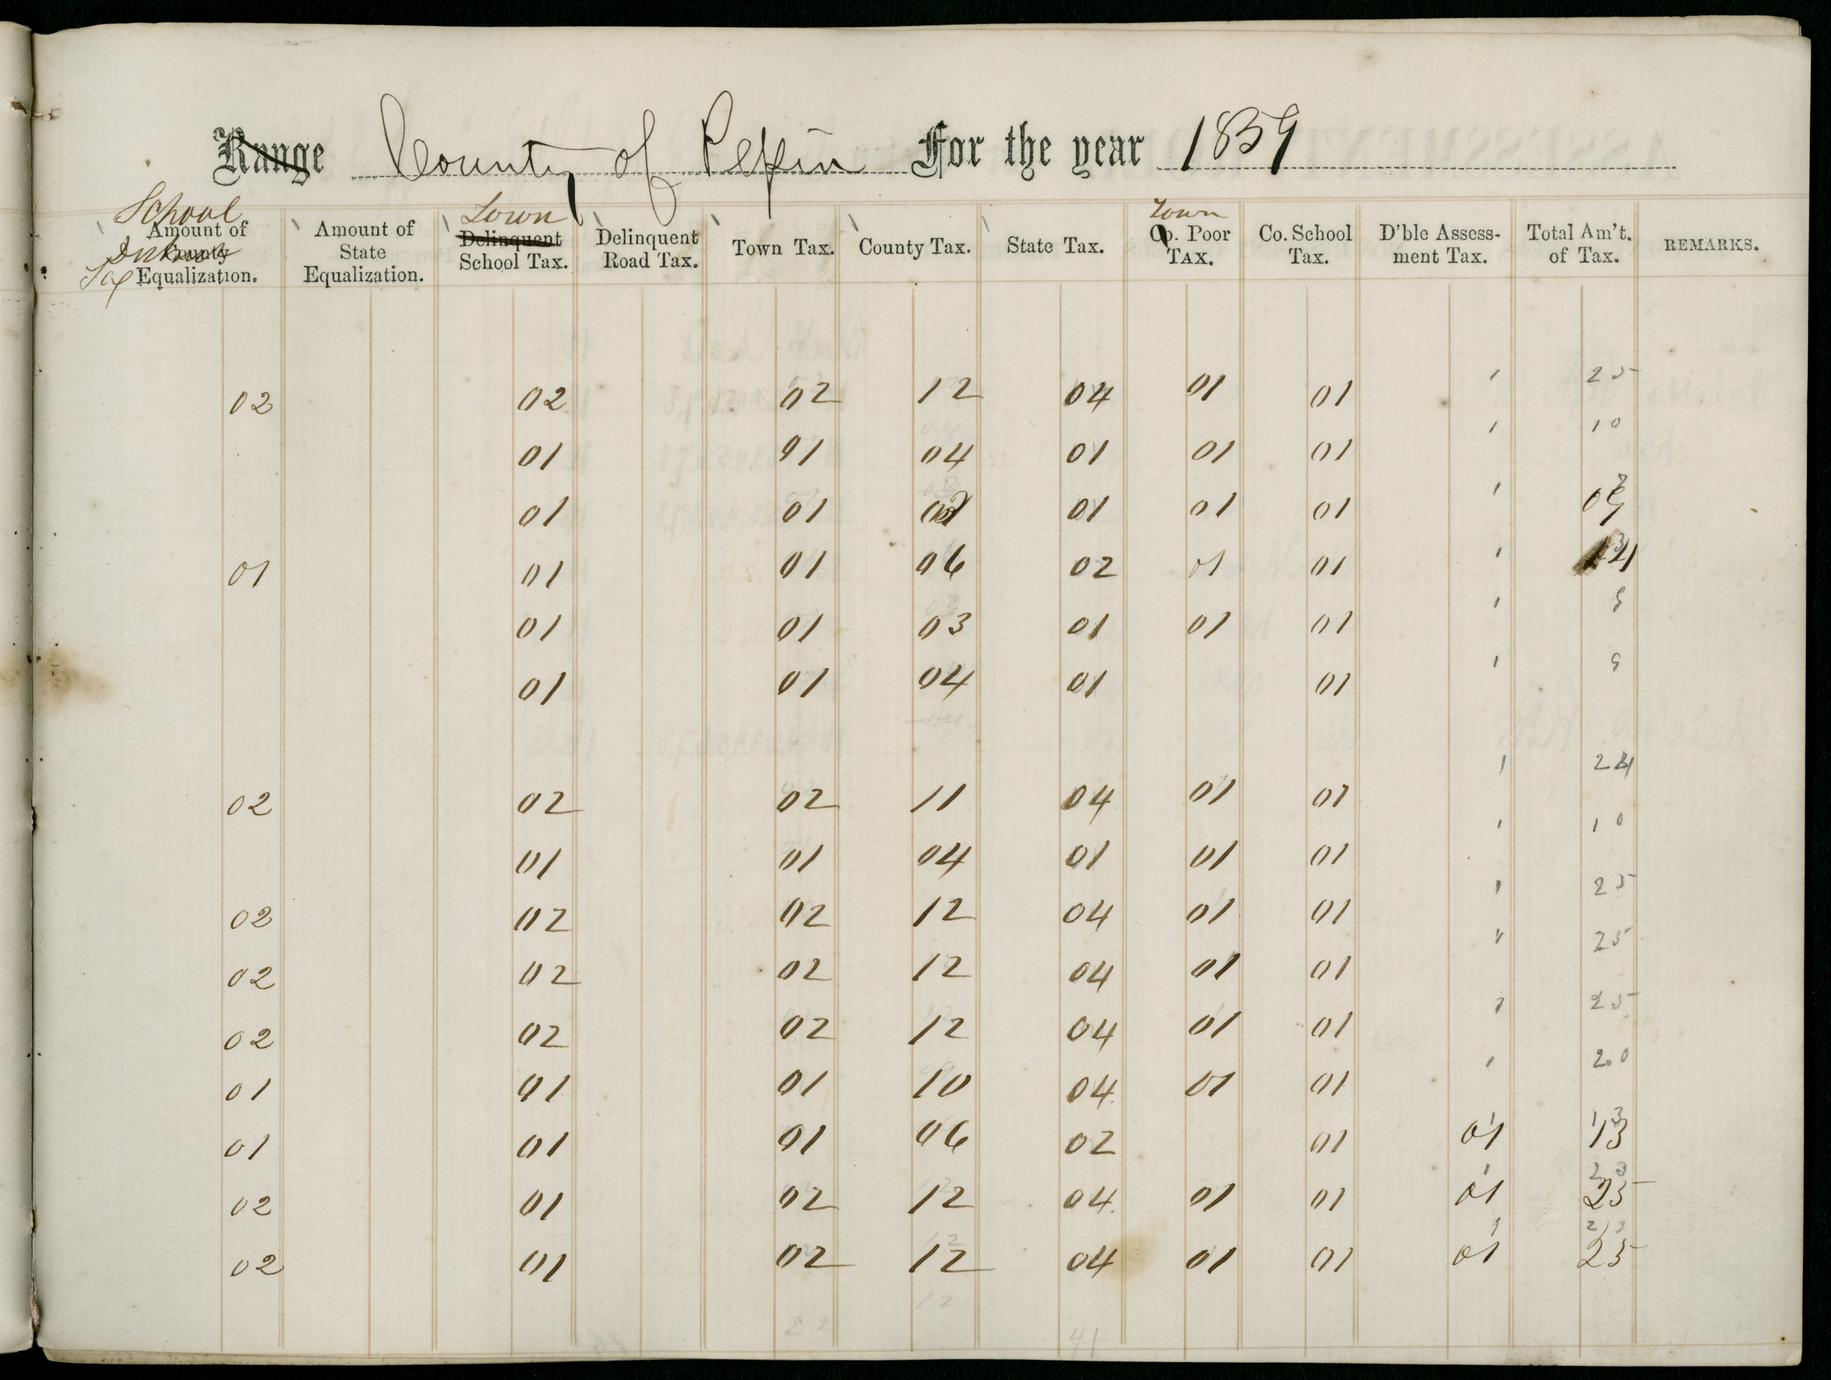 Range County of Pepin For the year 1859
School Town Town
Amount of County Equalization. Amount of State Equalization. Delinquent School Tax. Delinquent Road Tax. Town Tax. County Tax. State Tax. Co. Poor Tax. Co. School Tax. D'ble Assessment Tax. Total Am't. of Tax. REMARKS.
Tax
02 02 02 12 04 01 01 ' 25
01 01 04 01 01 01 ' 10
01 01 01 01 01 '
01 01 01 06 02 01 01 ' 14
01 01 03 01 01 01 ' 9
01 01 04 01 01 ' 9
02 02 02 11 04 01 01 ' 24
01 01 04 01 01 01 ' 10
02 02 02 12 04 01 01 ' 25
02 02 02 12 04 01 01 ' 25
02 02 02 12 04 01 01 ' 25
01 01 01 10 04 01 01 ' 20
01 01 01 06 02 01 01 13
02 01 02 12 04 01 01 01 25
02 01 02 12 04 01 01 01 25